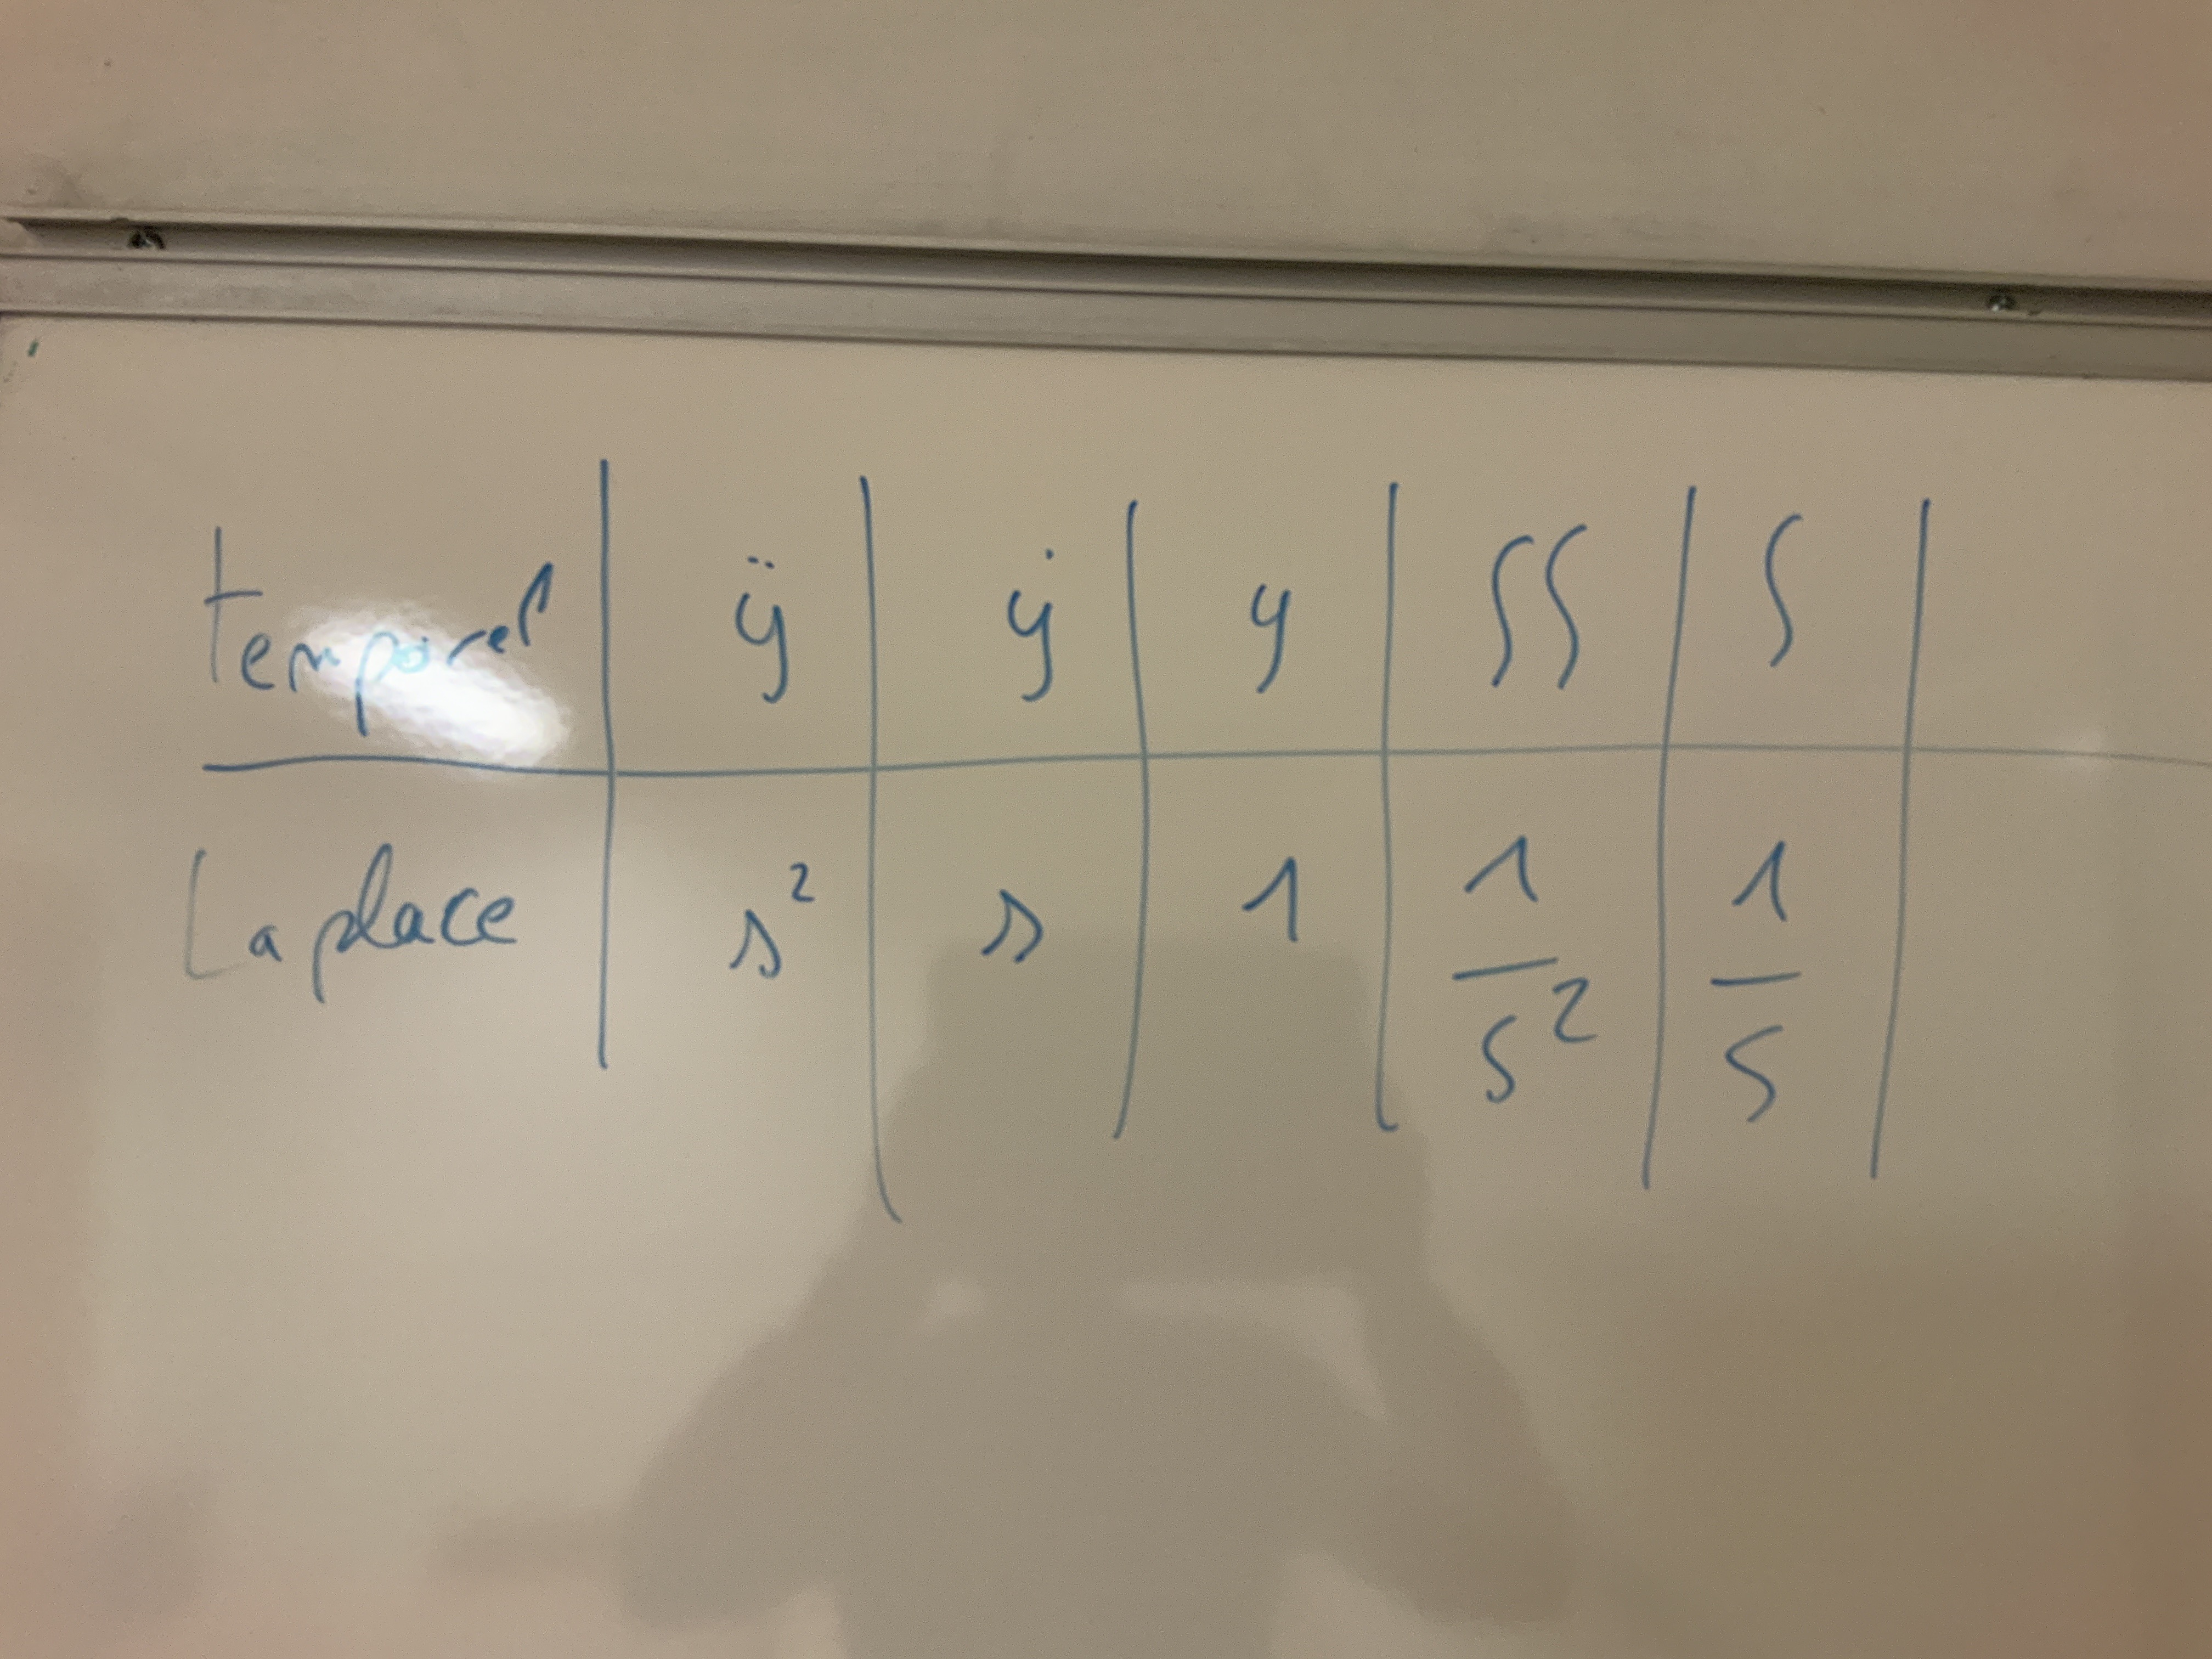 temporel ÿ ẏ y ∫∫ ∫
Laplace s² s 1 1/s² 1/s